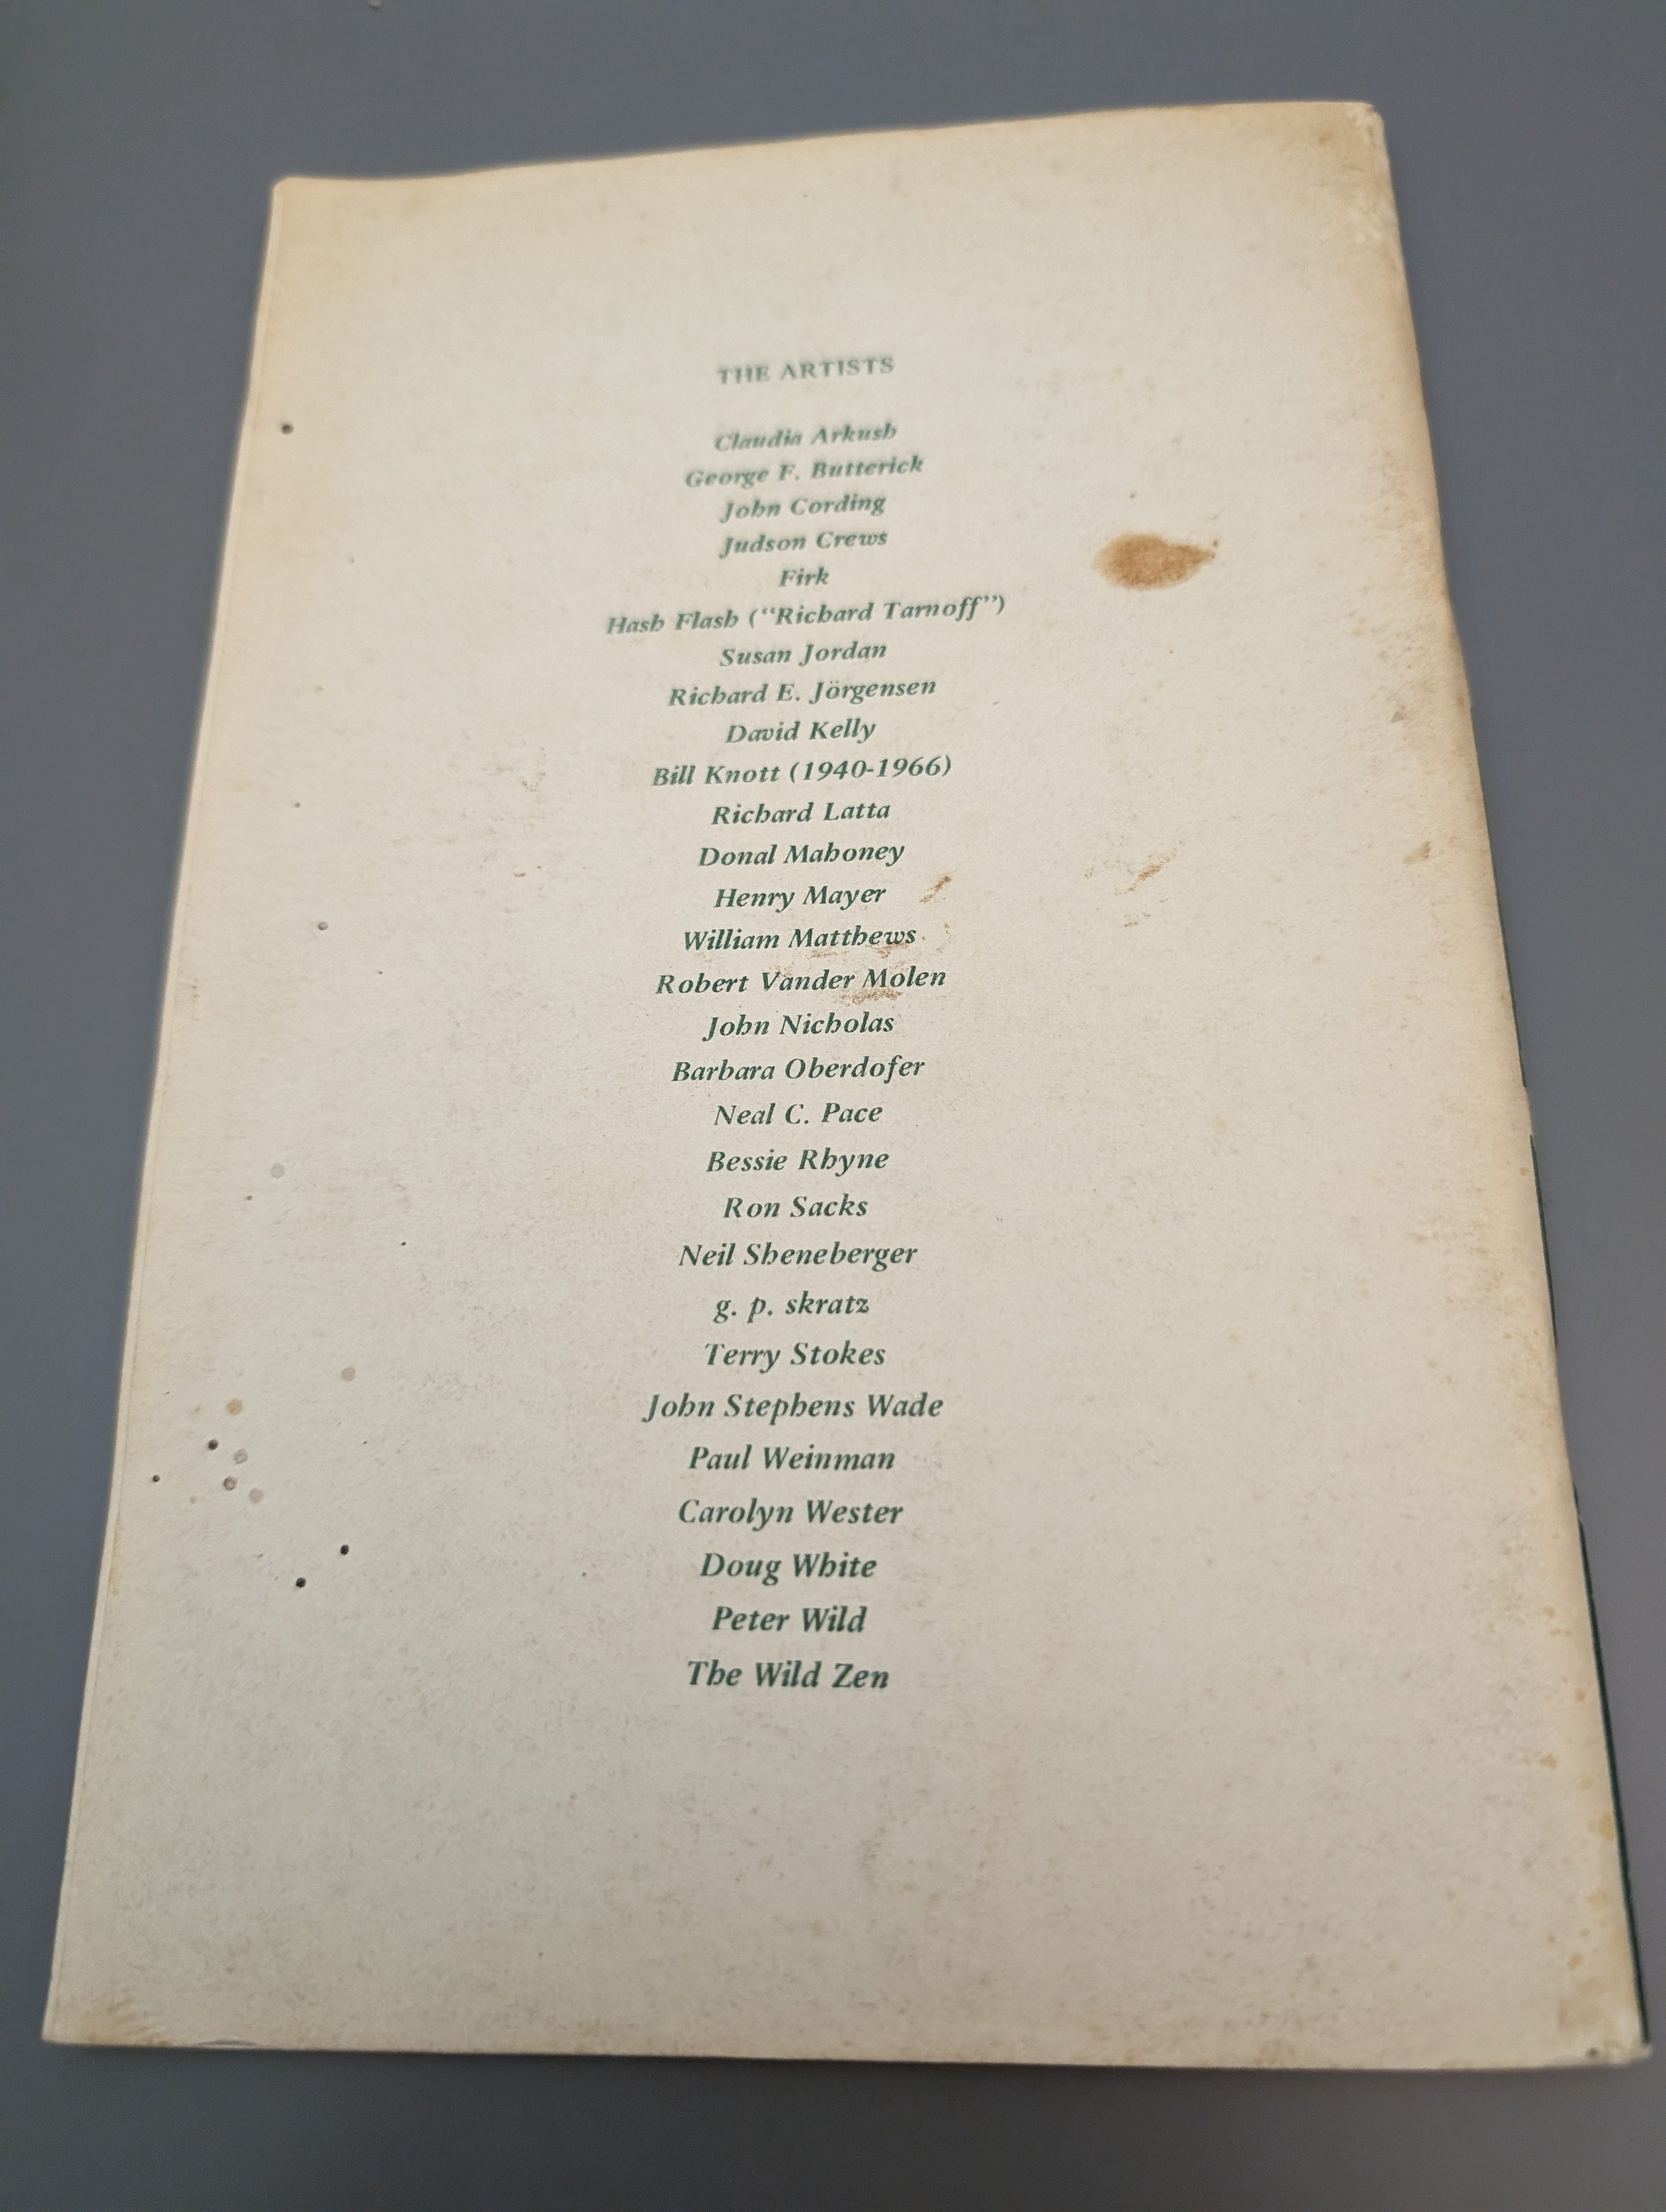 THE ARTISTS
Claudia Arkush
George F. Butterick
John Cording
Judson Crews
Firk
Hash Flash (“Richard Tarnoff”)
Susan Jordan
Richard E. Jörgensen
David Kelly
Bill Knott (1940-1966)
Richard Latta
Donal Mahoney
Henry Mayer
William Matthews
Robert Vander Molen
John Nicholas
Barbara Oberdofer
Neal C. Pace
Bessie Rhyne
Ron Sacks
Neil Sheneberger
g. p. skratz
Terry Stokes
John Stephens Wade
Paul Weinman
Carolyn Wester
Doug White
Peter Wild
The Wild Zen